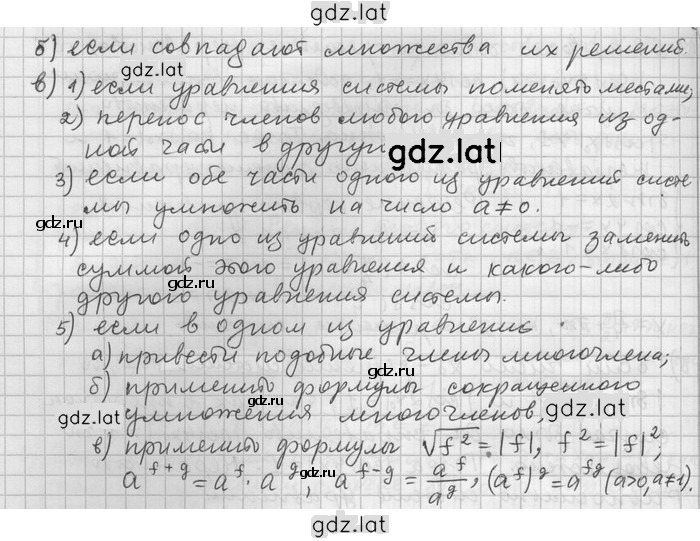 gdz.lat
б) если совпадают множества их решений.
gdz.lat gdz.lat
в) 1) если уравнения системы поменять местами;
2) перенос членов любого уравнения из од-
ной части в другую
gdz.lat
3) если обе части одного из уравнений систе-
мы умножить на число a≠0.
gdz.lat gdz.lat
4) если одно из уравнений системы заменить
суммой этого уравнения и какого-либо
gdz.lat gdz.lat
другого уравнения системы.
5) если в одном из уравнение
а) привести подобные члены многочлена;
б) применить формулы сокращенного
gdz.lat gdz.lat
умножения многочленов,
в) применить формулы √f² = |f|, f² = |f|²,
a^{f+g} = a^f · a^g, a^{f-g} = a^f / a^g, (a^f)^g = a^{fg} (a>0, a≠1).
gdz.lat